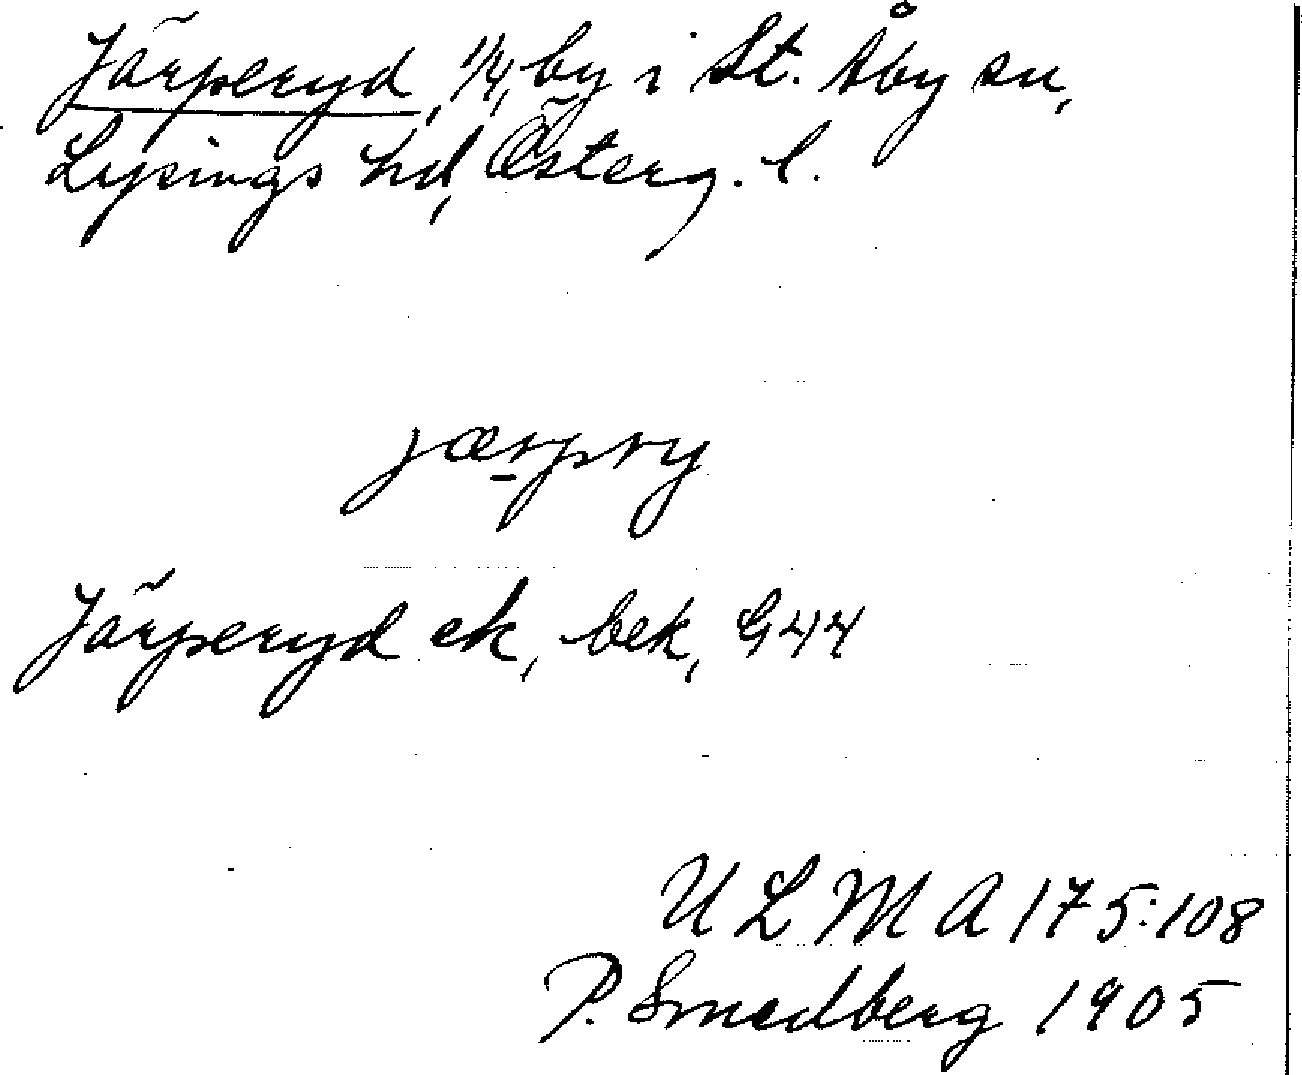 Järperyd, 1/4, by i St. Åby sn,
Lysings hd, Österg. l.
jærpry
Järperyd ek, bek, G44
ULMA 175:108
P. Smedberg 1905